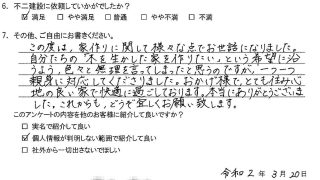 6. 不二建設に依頼していかがでしたか？
☑ 満足 □ やや満足 □ 普通 □ やや不満 □ 不満
7. その他、ご自由にお書きください。
この度は、家作りに関して様々な点でお世話になりました。
自分たちの「木を生かした家を作りたい」という希望に沿
うよう、色々と無理を言ってしまったと思うのですが、一つ一つ
親身に対応してくださりました。おかげ様で、とても住み心
地の良い家で快適に過ごしております。本当にありがとうございま
した。これからも、どうぞ宜しくお願い致します。
このアンケートの内容を他のお客様に紹介して良いですか？
□ 実名で紹介して良い
☑ 個人情報が判明しない範囲で紹介して良い
□ 社外から一切出さないでほしい
令和 2 年 3 月 20日